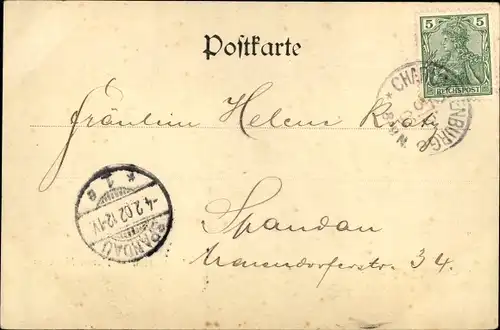 Postkarte
5
REICHSPOST
CHARLOTTENBURG
Fräulein Helene
SPANDAU
-4.2.02.12-1V.
* 1 e
Spandau
34